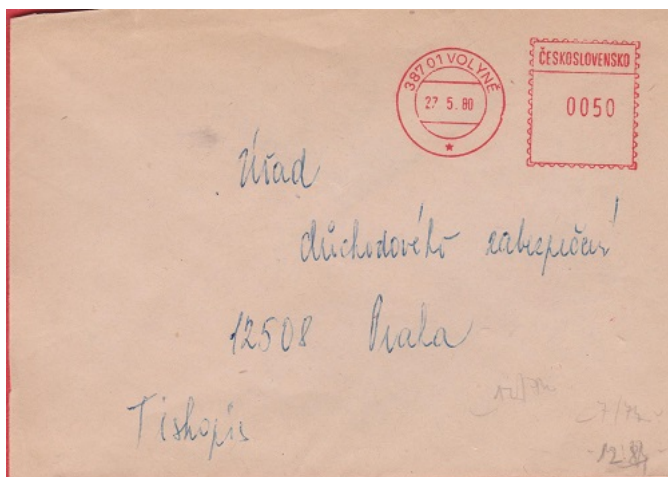 38701 VOLYNĚ
27. 5. 80
ČESKOSLOVENSKO
0050
Úřad
důchodového zabezpečení
12508 Praha
Tiskopis